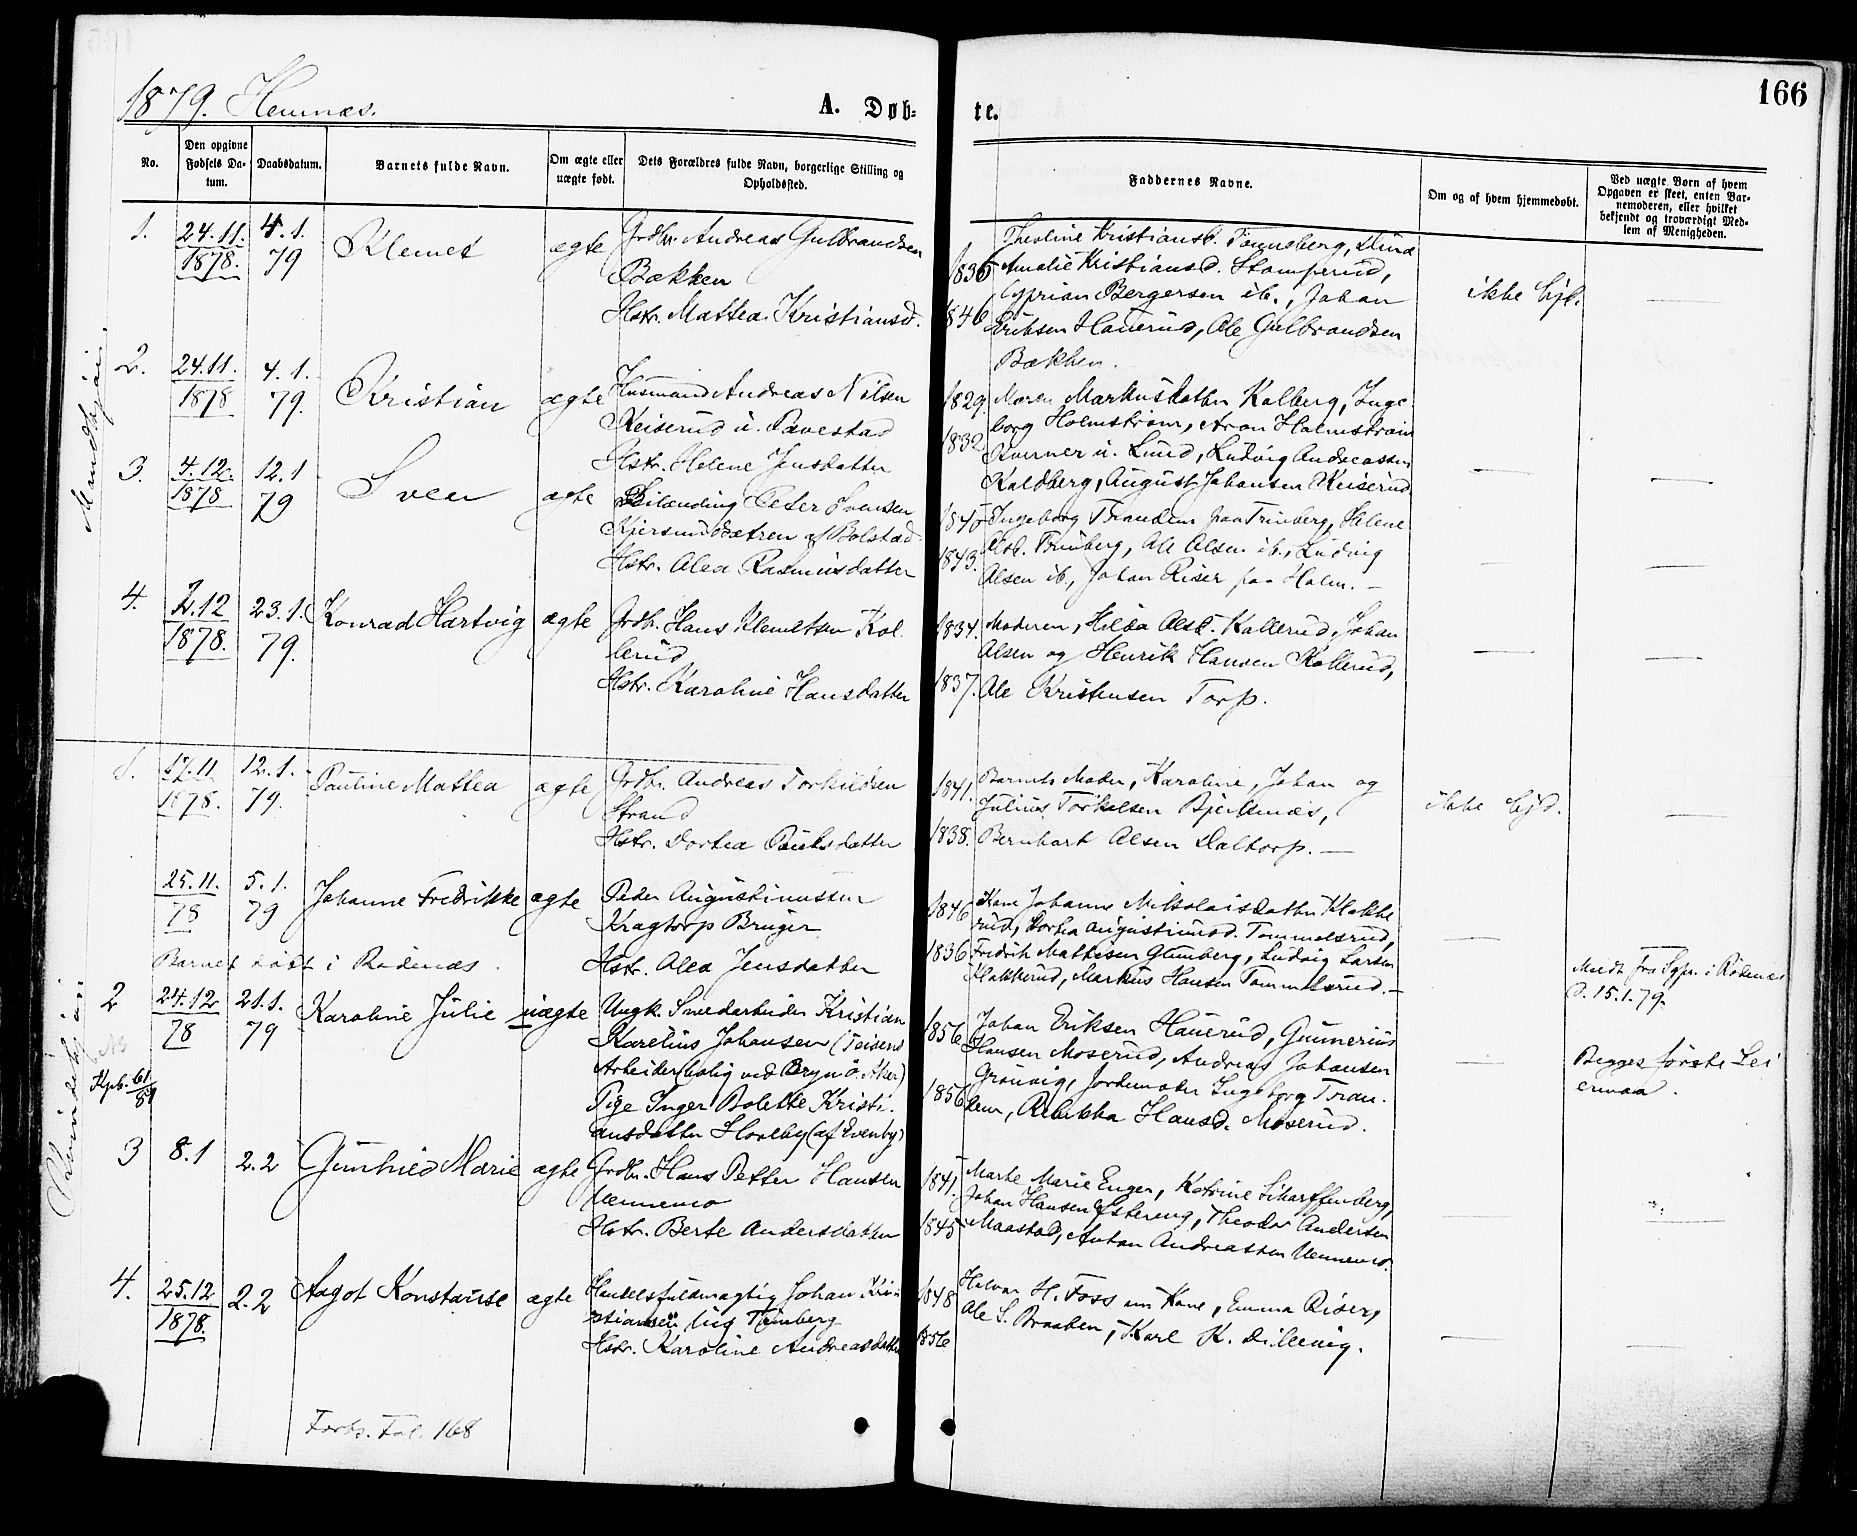 166
1879. Hemnæs.
A. Døb-
te.
No.
Den opgivne Fødsels Da-
tum.
Daabsdatum.
Barnets fulde Navn.
Om ægte eller
uægte født.
Dets Forældres fulde Navn, borgerlige Stilling og
Opholdssted.
Faddernes Navne.
Om og af hvem hjemmedøbt.
Ved uægte Børn af hvem
Opgaven er skeet, enten Bar-
nemoderen, eller hvilket
bekjendt og troværdigt Med-
lem af Menigheden.
Mandkjøn.
1.
24.11.
1878.
4.1.
79
Klemet
ægte
Grdbr. Andreas Gulbrandsen
Bækken
Hstr. Mattea Kristiansd.
1836
1846
Theoline Kristiansd. Tønnesberg,
Amalie Kristiansd. Stomperud,
Cyprian Bergersen ib., Johan
Eriksen Hauerud, Ole Gulbrandsen
Bækken.
ikke hjd.
2.
24.11.
1878
4.1.
79.
Kristian
ægte
Husmand Andreas Nilsen
Keiserud u. Tavestad
Hstr. Helene Jensdatter
1829
1832
Maren Markusdatter Kolberg, Inge-
borg Holmstrøm, Aron Holmstrøm
Kverner u. Lund, Ludvig Andreassen
Kaldberg, August Johansen Keiserud
3.
4.12.
1878
12.1
79
Sven
ægte
Peter Svensen
af Bolstad
Hstr. Olea Rasmusdatter
1845
1843.
Ingeborg Trandem paa Trinberg, Helene
Trinberg, Ole Olsen ib., Ludvig
Olsen ib., Johan Riser paa Holm.
4.
2.12
1878.
23.1.
79.
Konrad Hartvig
ægte
Grdb. Hans Klemetsen Kol-
lerud
Hstr. Karoline Hansdatter
1834.
1837.
Moderen, Hilda Olsd. Kollerud, Johan
Olsen og Henrik Hansen Kollerud,
Ole Kristensen Torp.
Kvindekjøn
1.
17.11
1878.
12.1.
79.
Pauline Mattea
ægte
Grdbr. Andreas Torkildsen
Strand
Hstr. Dortea Paulsdatter
1841.
1838.
Barnets Moder, Karoline, Johan og
Julius Torkelsen Bjerknæs,
Bernhart Olsen Daltorp.
ikke hjd.
25.11.
78
5.1.
79
Johanne Fredrikke
ægte
Peder Augustinussen
Kragtorp Bruger
Hstr. Olea Jensdatter
Barnet døbt i Rødenæs.
1846
1836
Kone Johanne Nikolaisdatter Klokke-
rud, Dortea Augustinusd. Tømmelsrud,
Fredrik Mathisen Glumberg, Ludvig Larsen
Klokkerud, Markus Hansen Tømmelsrud.
Medt. fra Sgpr. i Rødenæs
d. 15.1.79.
2
24.12
78
21.1.
79
Karoline Julie
uægte
Ungk. Smedarbeider Kristian
Karelius Johansen (Teisens
Arbeiderbolig ved Bryn Ø. Aker)
Pige Inger Bolette Kristi-
ansdatter Hovelby (af Evenby)
Kpb. 61/89
1856
1856
Johan Eriksen Hauerud, Gunnerius
Hansen Moserud, Andreas Johansen
Grønvig, Jordemoder Ingeborg Tran-
dem, Rebekka Hansd. Moserud.
Begges første Lei-
ermaal.
3
8.1
2.2
Gunhild Marie
ægte
Grdbr. Hans Petter Hansen
Vennemo
Hstr. Berte Andersdatter
1841.
1845
Marte Marie Enger, Katrine Scharffenberg,
Johan Hansen Østereng, Theodor Andersen
Maastad, Anton Andreassen Vennemo.
4.
25.12
1878.
2.2
Aagot Konstanse
ægte
Handelsfuldmægtig Johan Kri-
stiansen Trinberg
Hstr. Karoline Andreasdatter
1848
1856
Halvor H. Foss om Kone, Emma Riser,
Ole S. Braaten, Karl K. Dillevig.
Forts. Fol. 168